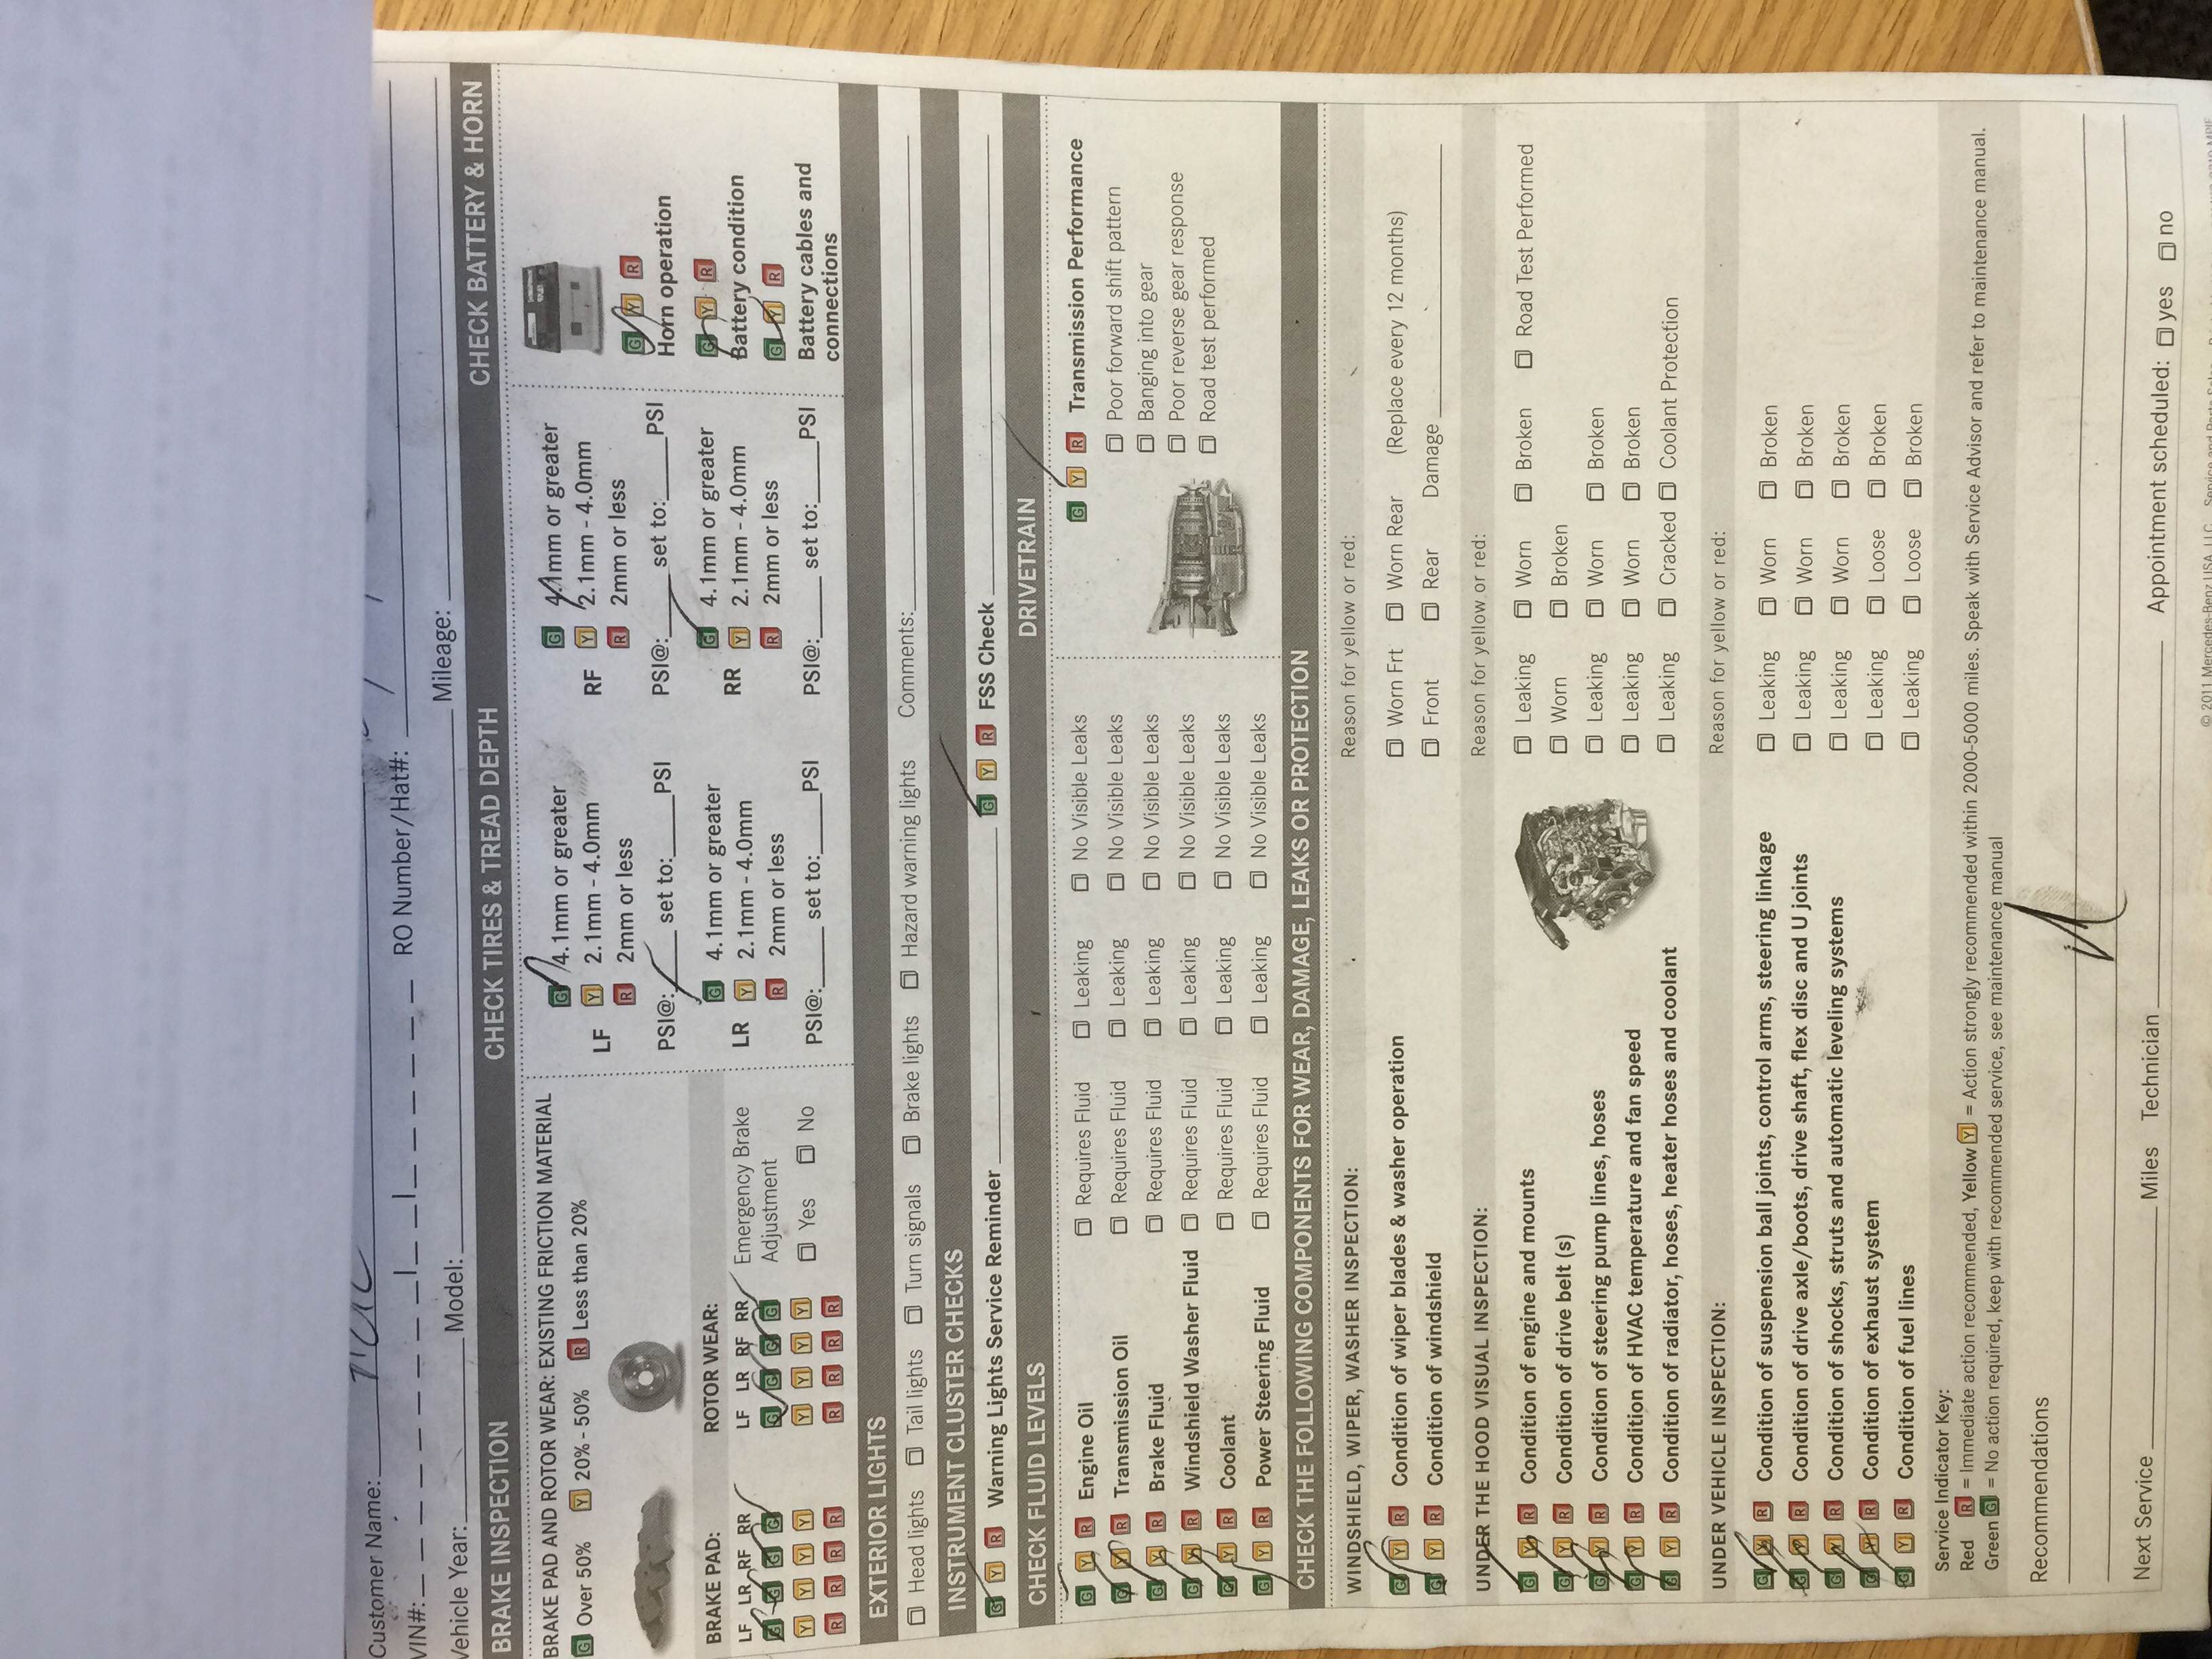 Customer Name:
VIN#: RO Number/Hat#:
Vehicle Year: Model: Mileage:
BRAKE INSPECTION CHECK TIRES & TREAD DEPTH CHECK BATTERY & HORN
BRAKE PAD AND ROTOR WEAR: EXISTING FRICTION MATERIAL
G Over 50% Y 20% - 50% R Less than 20%
BRAKE PAD: ROTOR WEAR:
LF LR RF RR LF LR RF RR Emergency Brake
G G G G G G G G Adjustment
Y Y Y Y Y Y Y Y Yes No
R R R R R R R R
LF
G 4.1mm or greater
Y 2.1mm - 4.0mm
R 2mm or less
PSI@: set to: PSI
RF
G 4.1mm or greater
Y 2.1mm - 4.0mm
R 2mm or less
PSI@: set to: PSI
LR
G 4.1mm or greater
Y 2.1mm - 4.0mm
R 2mm or less
PSI@: set to: PSI
RR
G 4.1mm or greater
Y 2.1mm - 4.0mm
R 2mm or less
PSI@: set to: PSI
G Y R
Horn operation
G Y R
Battery condition
G Y R
Battery cables and
connections
EXTERIOR LIGHTS
Head lights Tail lights Turn signals Brake lights Hazard warning lights Comments:
INSTRUMENT CLUSTER CHECKS
G Y R Warning Lights Service Reminder G Y R FSS Check
CHECK FLUID LEVELS DRIVETRAIN
G Y R Engine Oil Requires Fluid Leaking No Visible Leaks
G Y R Transmission Oil Requires Fluid Leaking No Visible Leaks
G Y R Brake Fluid Requires Fluid Leaking No Visible Leaks
G Y R Windshield Washer Fluid Requires Fluid Leaking No Visible Leaks
G Y R Coolant Requires Fluid Leaking No Visible Leaks
G Y R Power Steering Fluid Requires Fluid Leaking No Visible Leaks
G Y R Transmission Performance
Poor forward shift pattern
Banging into gear
Poor reverse gear response
Road test performed
CHECK THE FOLLOWING COMPONENTS FOR WEAR, DAMAGE, LEAKS OR PROTECTION
WINDSHIELD, WIPER, WASHER INSPECTION: Reason for yellow or red:
G Y R Condition of wiper blades & washer operation Worn Frt Worn Rear (Replace every 12 months)
G Y R Condition of windshield Front Rear Damage
UNDER THE HOOD VISUAL INSPECTION: Reason for yellow or red:
G Y R Condition of engine and mounts Leaking Worn Broken Road Test Performed
G Y R Condition of drive belt (s) Worn Broken
G Y R Condition of steering pump lines, hoses Leaking Worn Broken
G Y R Condition of HVAC temperature and fan speed Leaking Worn Broken
G Y R Condition of radiator, hoses, heater hoses and coolant Leaking Cracked Coolant Protection
UNDER VEHICLE INSPECTION: Reason for yellow or red:
G Y R Condition of suspension ball joints, control arms, steering linkage Leaking Worn Broken
G Y R Condition of drive axle/boots, drive shaft, flex disc and U joints Leaking Worn Broken
G Y R Condition of shocks, struts and automatic leveling systems Leaking Worn Broken
G Y R Condition of exhaust system Leaking Loose Broken
G Y R Condition of fuel lines Leaking Loose Broken
Service Indicator Key:
Red R = Immediate action recommended, Yellow Y = Action strongly recommended within 2000-5000 miles. Speak with Service Advisor and refer to maintenance manual.
Green G = No action required, keep with recommended service, see maintenance manual
Recommendations
Next Service Miles Technician Appointment scheduled: yes no
© 2011 Mercedes-Benz USA, LLC